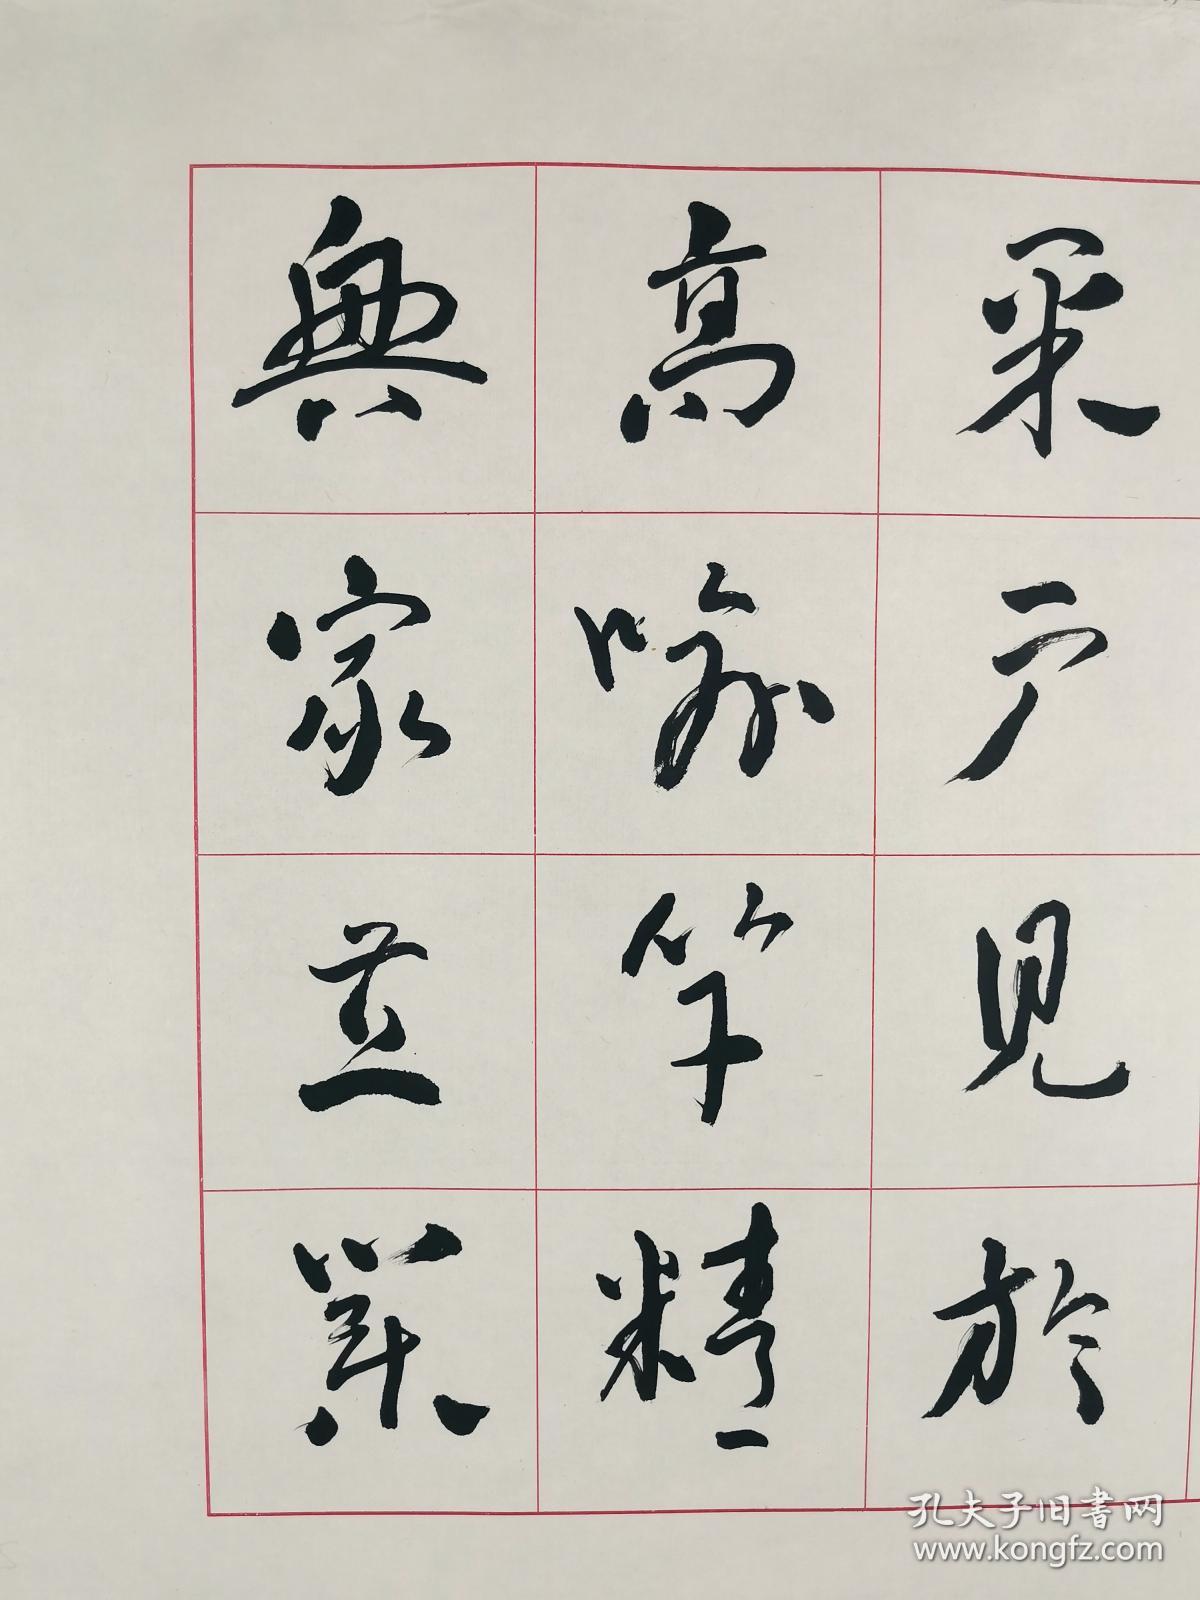 采戶見於
高喻竿精
興家立業
孔夫子旧書网
www.kongfz.com